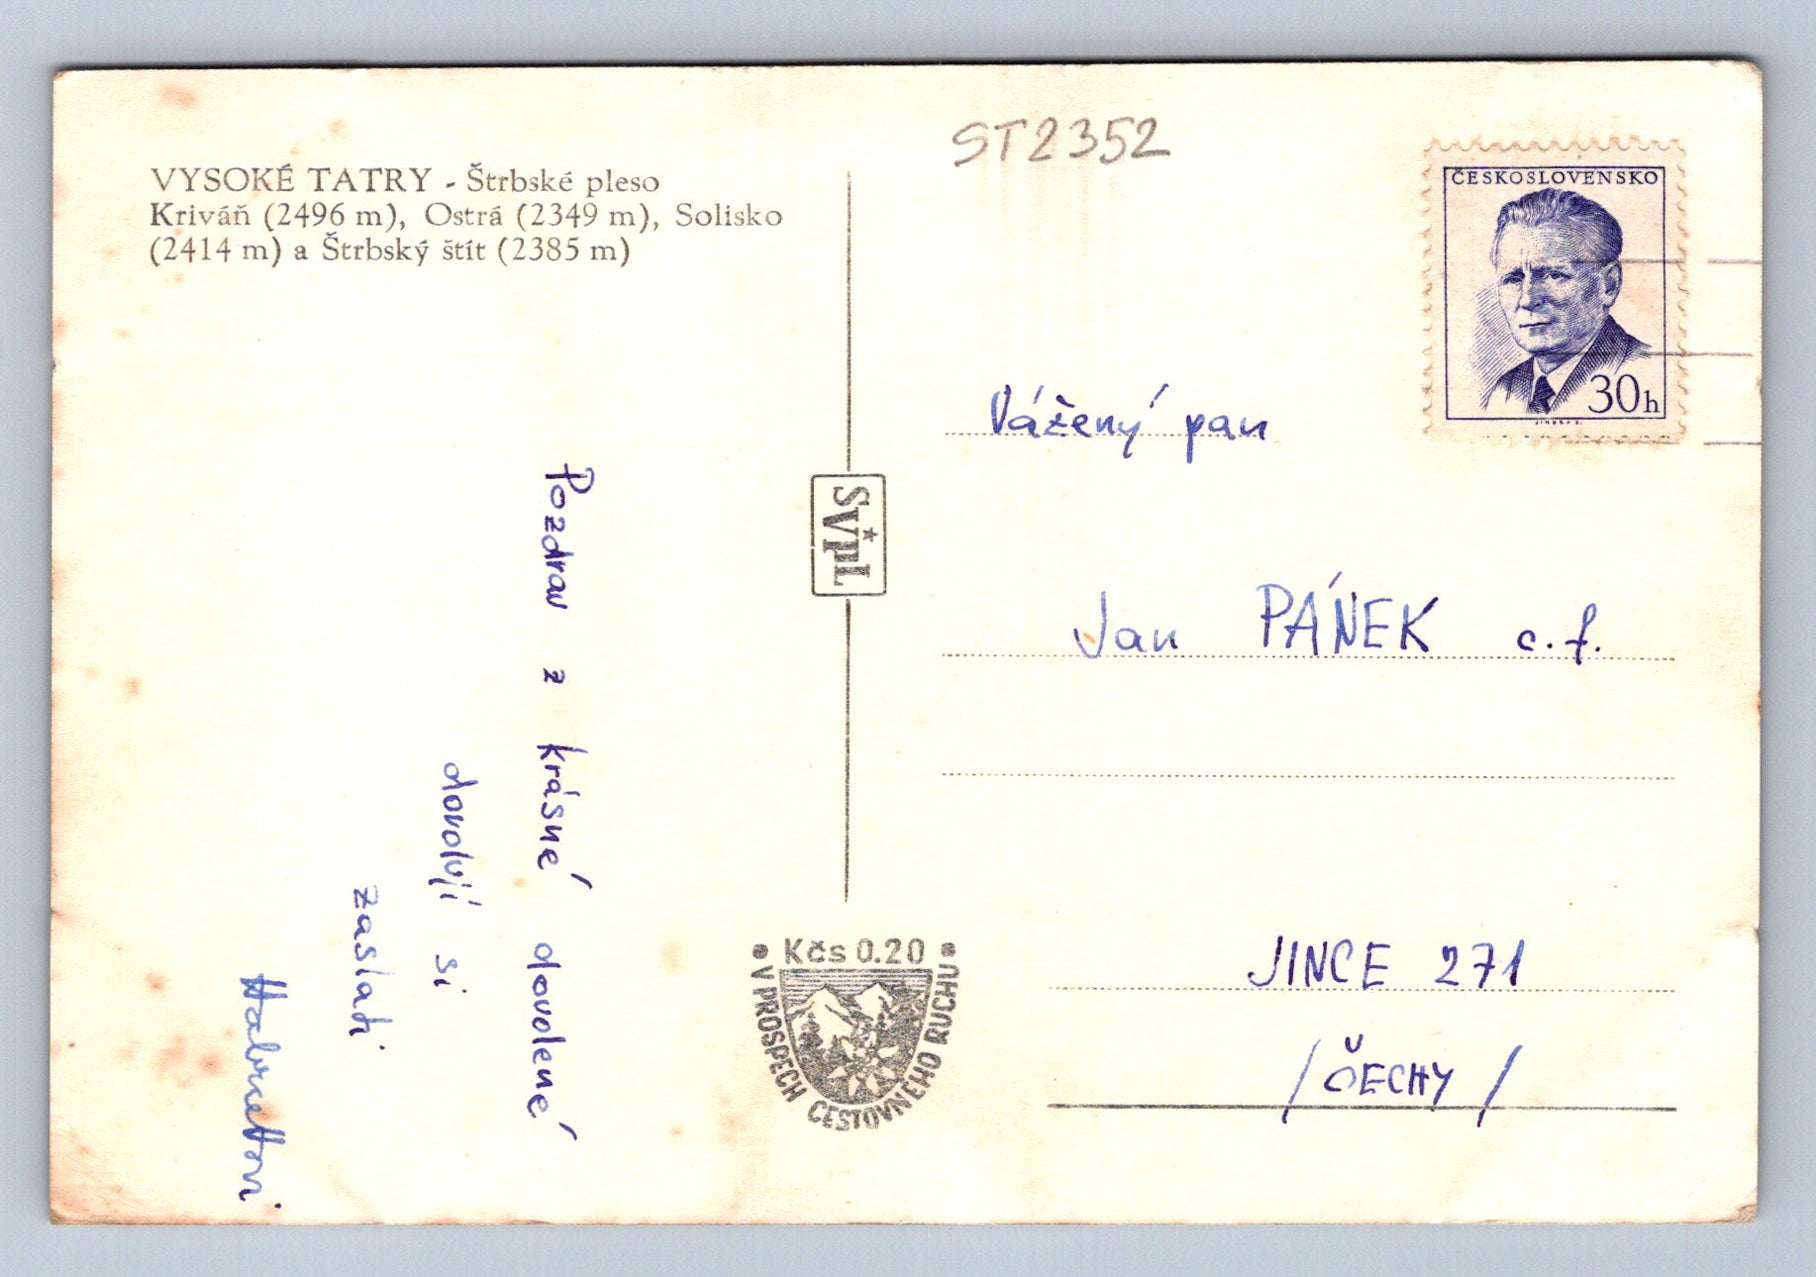 VYSOKÉ TATRY - Štrbské pleso
Kriváň (2496 m), Ostrá (2349 m), Solisko
(2414 m) a Štrbský štít (2385 m)
Pozdrav z krásné dovolené
dovolují si
zaslati
Habrettovi
SVTL
Kčs 0.20
V PROSPECH CESTOVNÉHO RUCHU
ST2352
ČESKOSLOVENSKO
30h
Vážený pan
Jan PÁNEK c.f.
JINCE 271
/ČECHY/